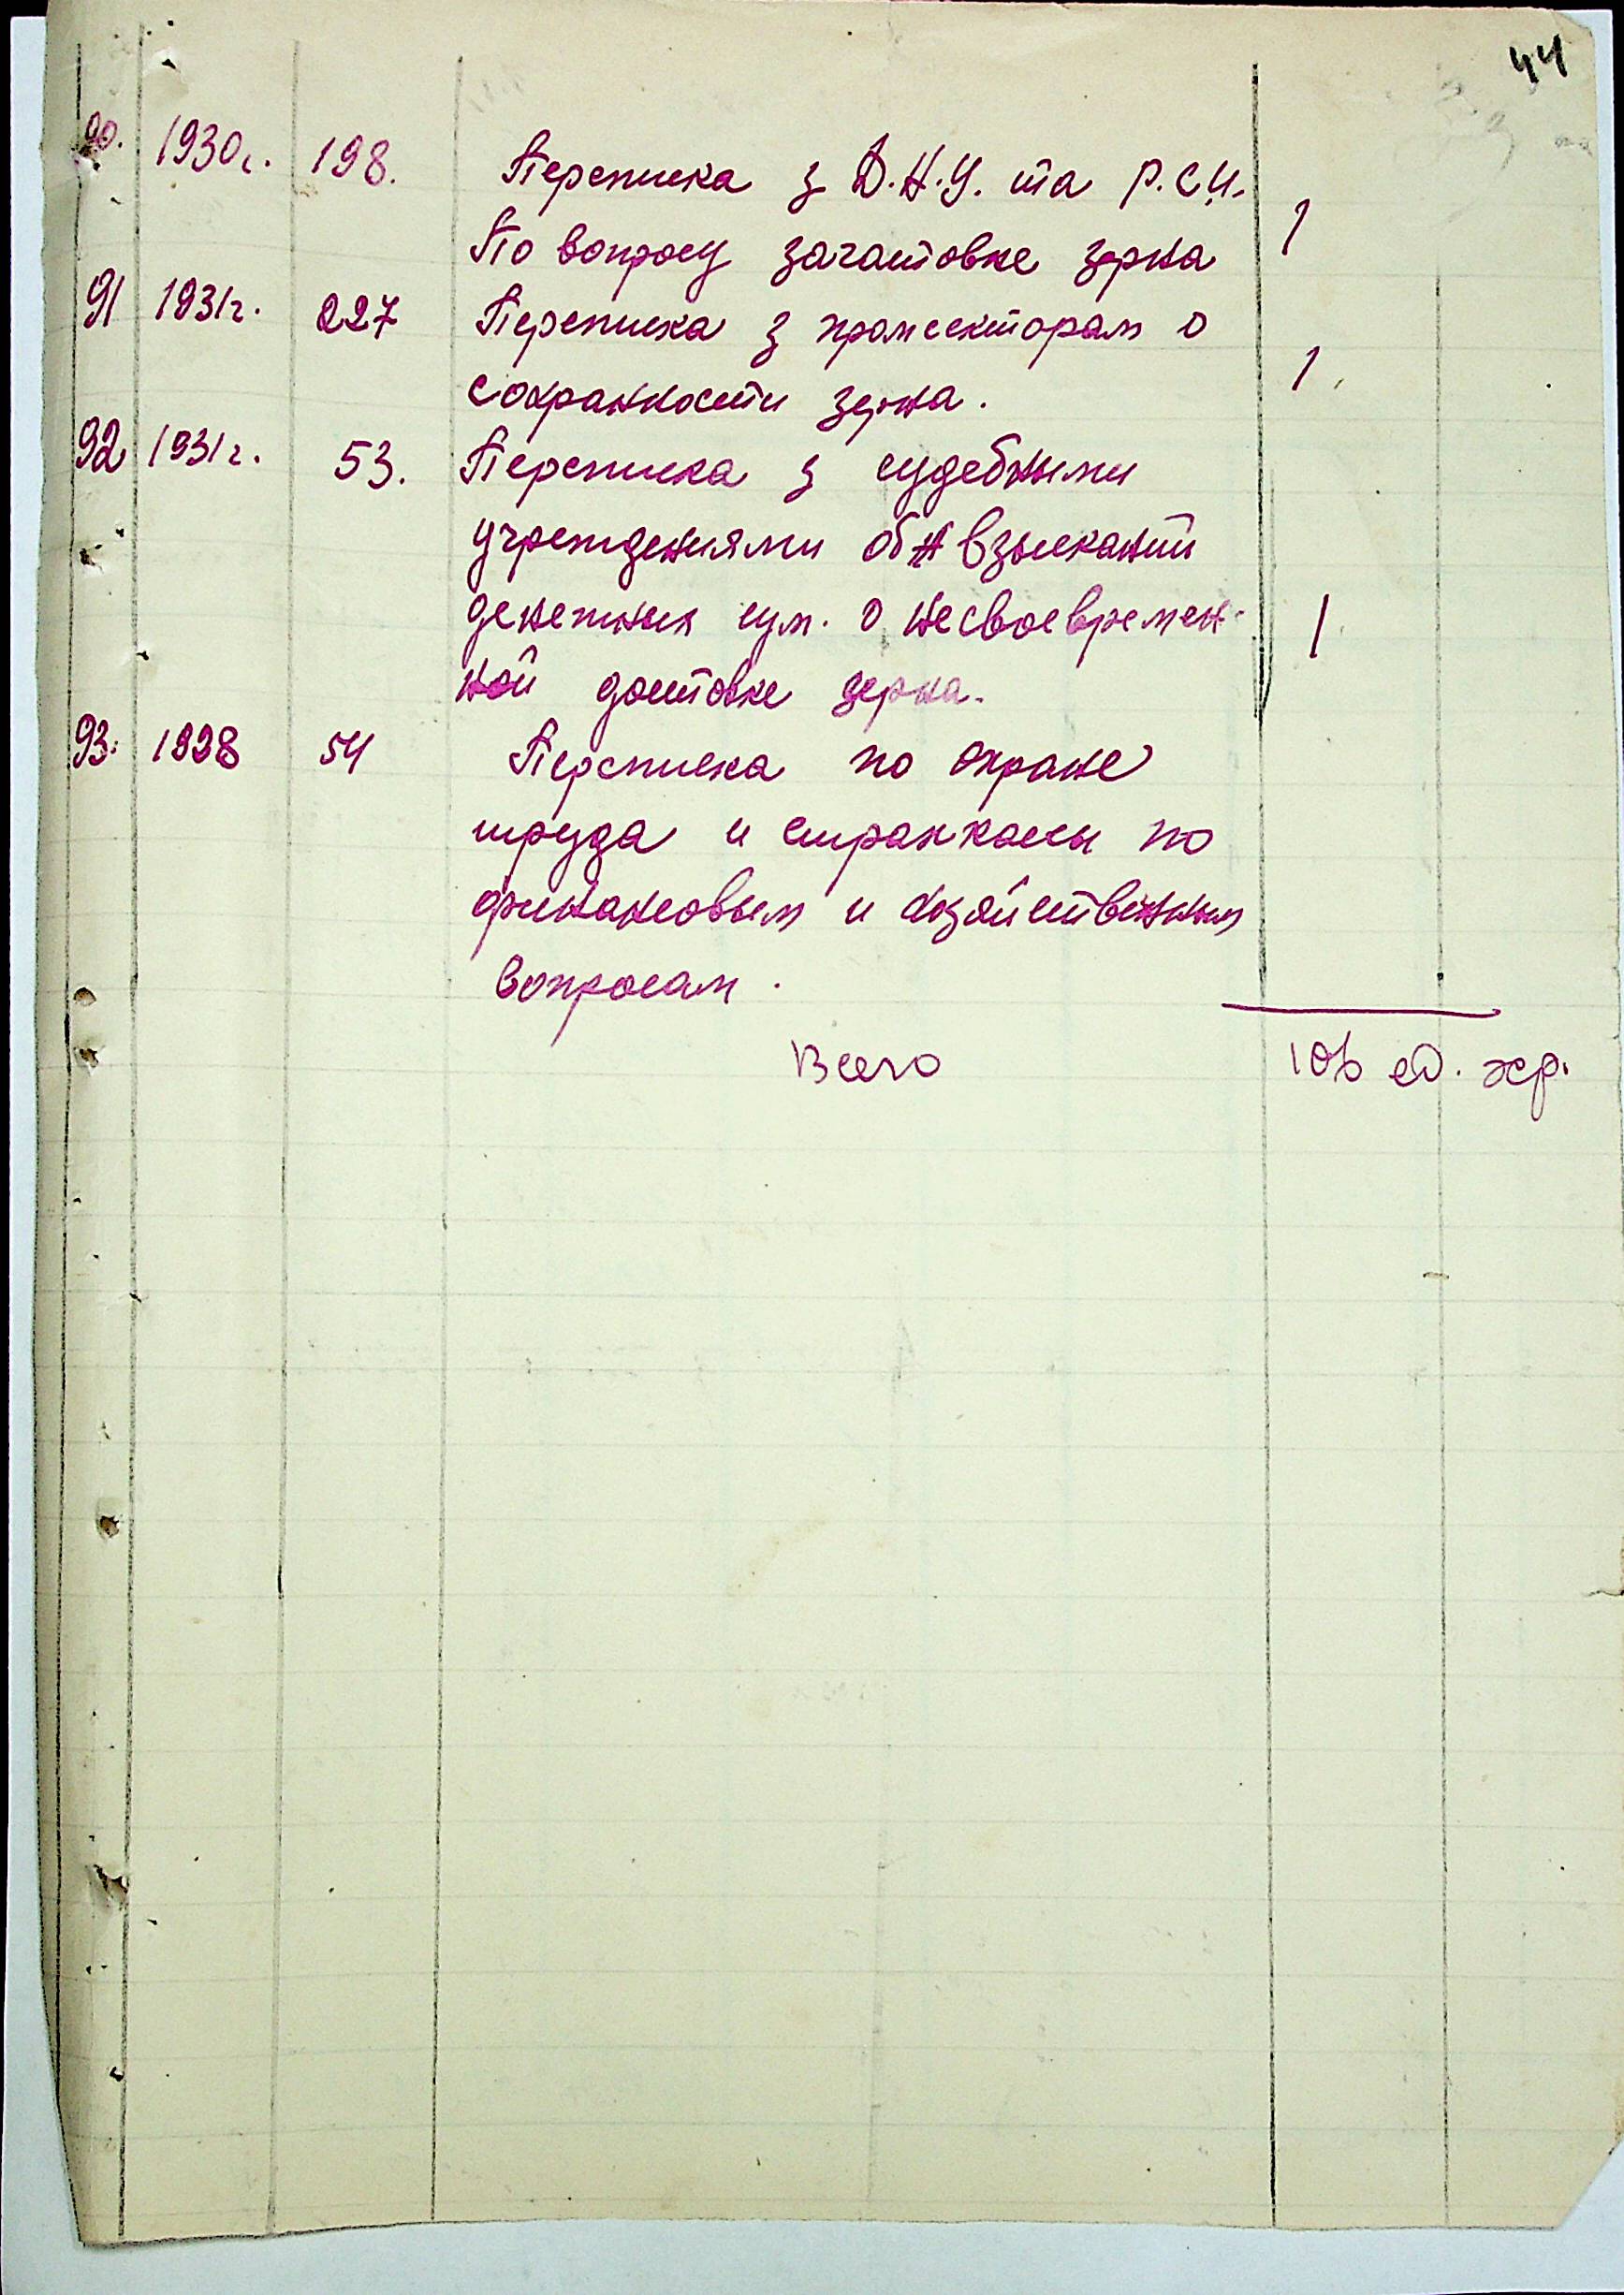 44
90. 1930г. 198. Переписка з Д.Н.У. та Р.С.И.
По вопросу заготовке зерна 1
91 1931г. 227 Переписка з промсекторам о
сохранности зерна. 1.
92 1931г. 53. Переписка з судебными
учреждениями об взысканий
денежных сум. о несвоевремен-
ной доставке зерна. 1
93. 1928 54 Переписка по охране
труда и страхкасы по
финансовым и хозяйственным
вопросам.
Всего 106 ед. хр.